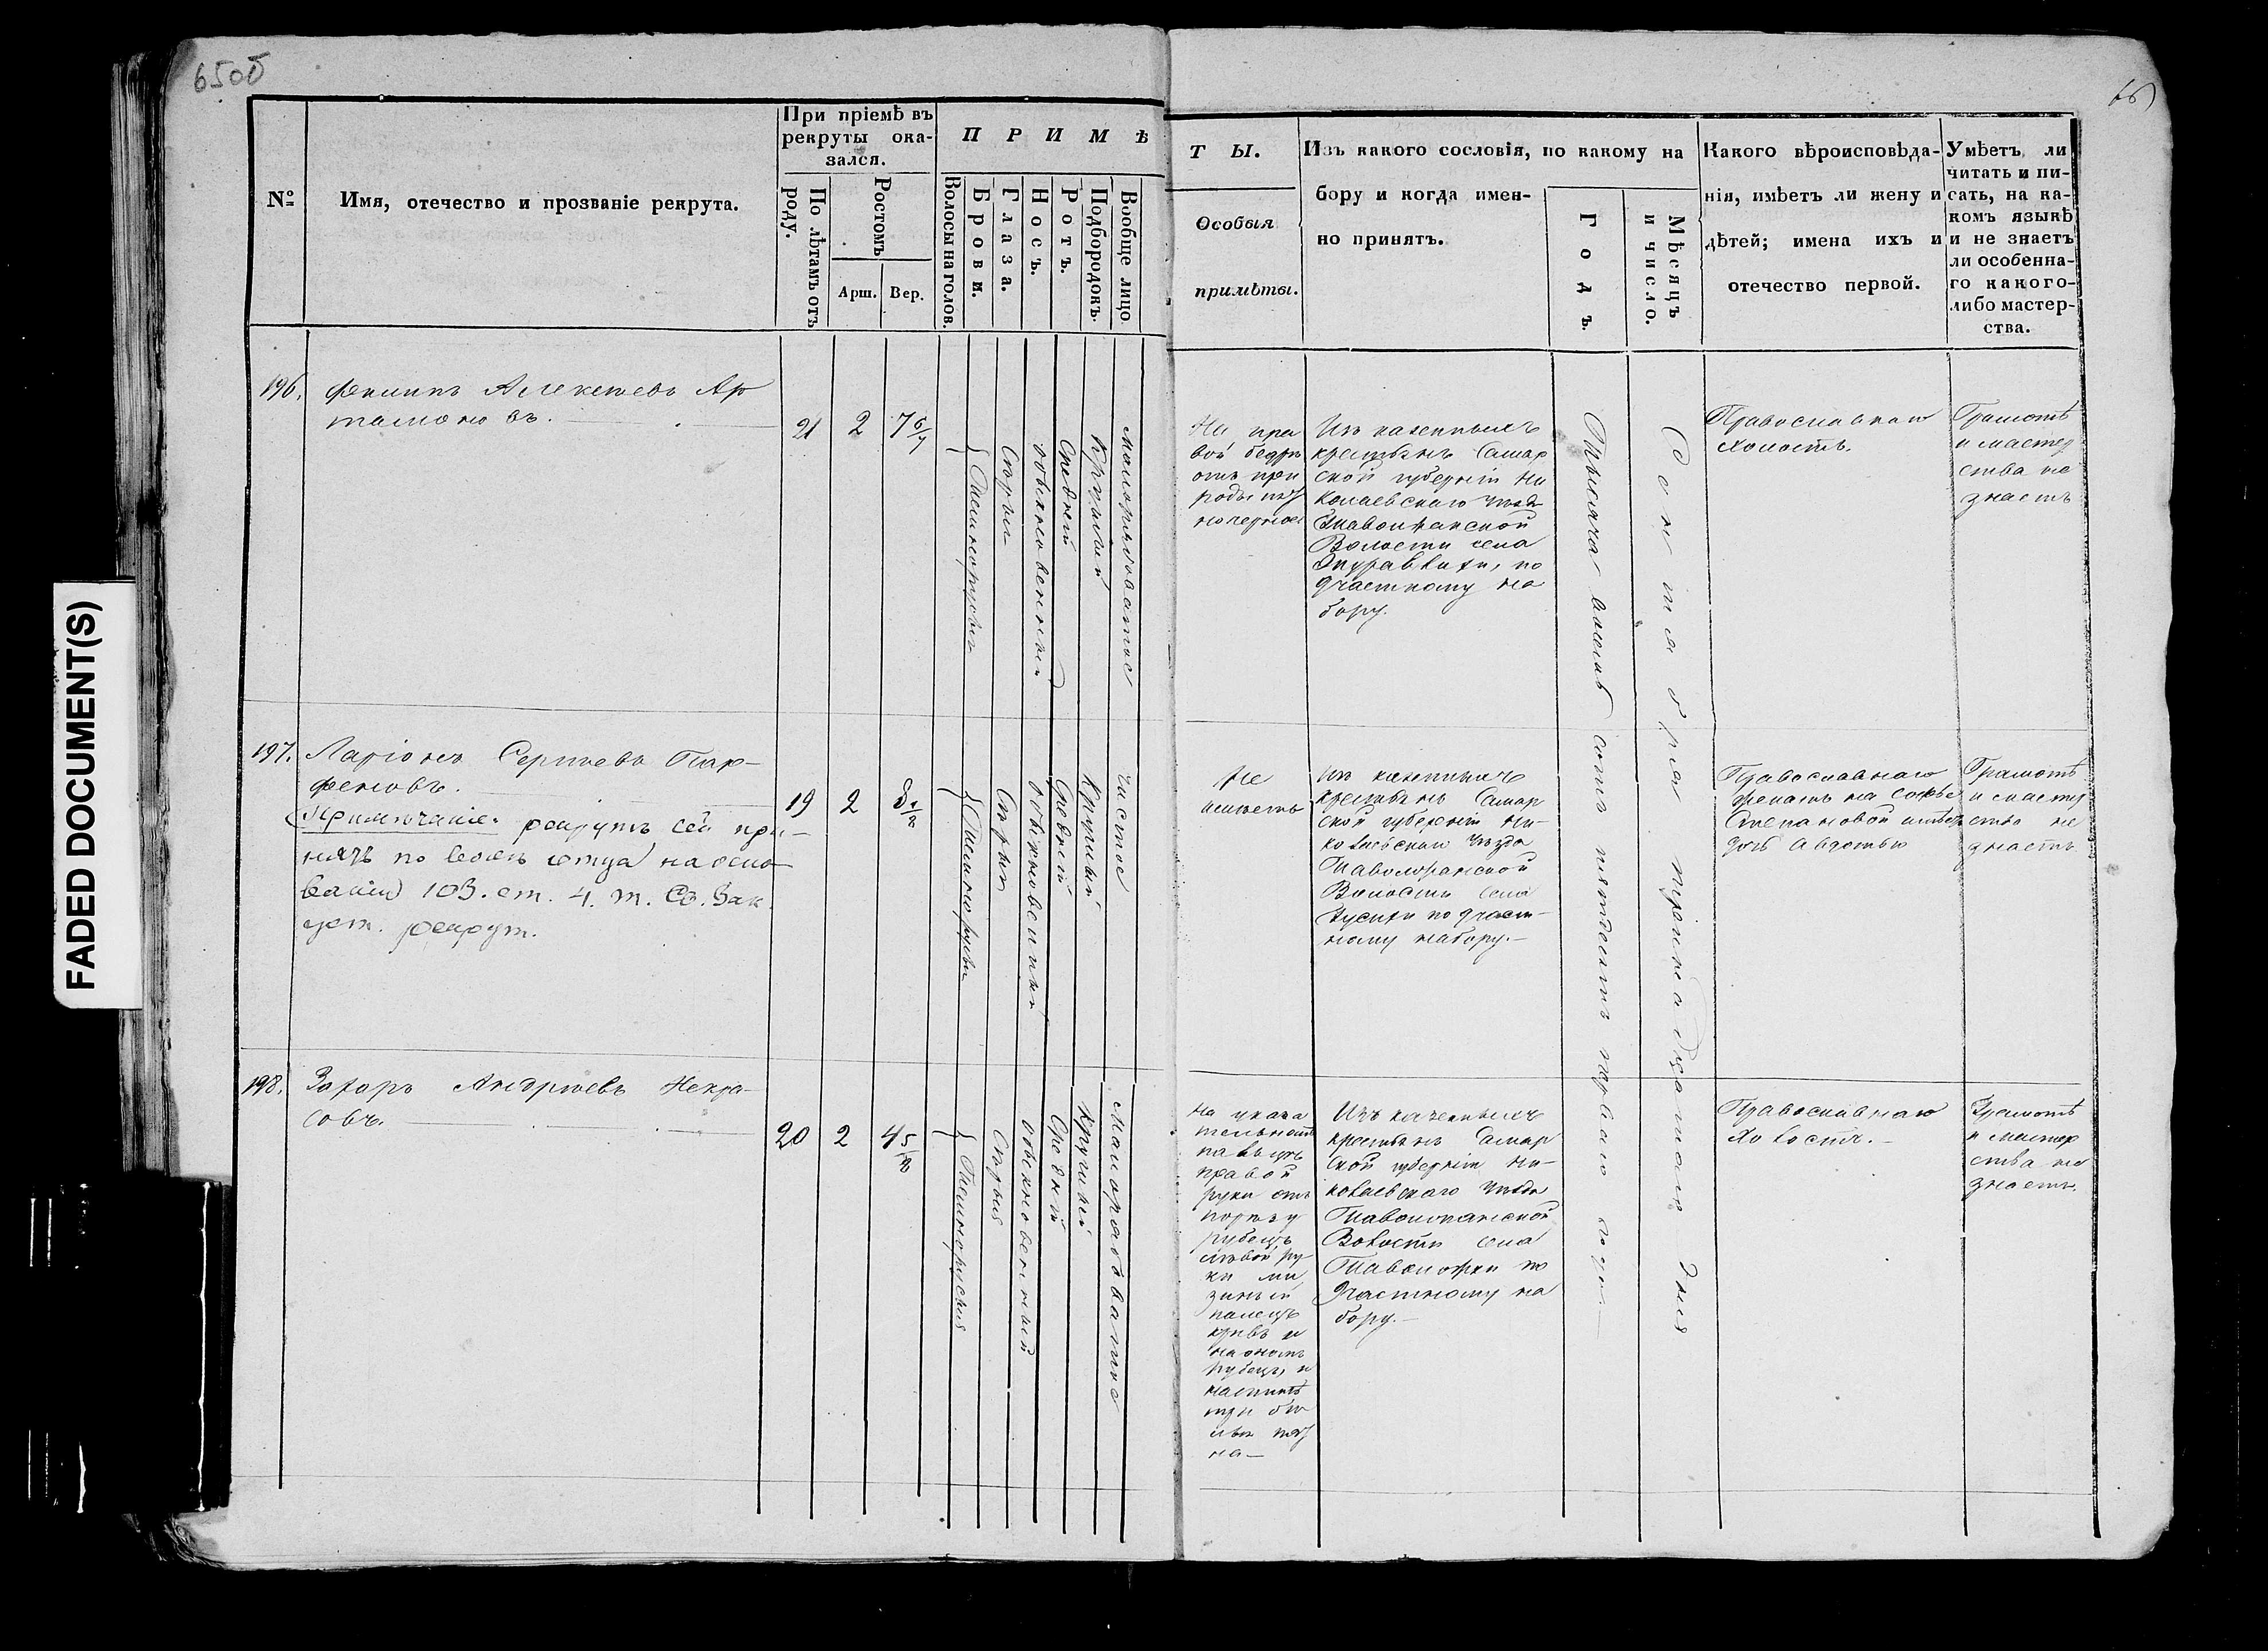 FADED DOCUMENT(S)
65об
66
№
Имя, отечество и прозваніе рекрута.
При пріемѣ въ
рекруты ока-
зался.
По лѣтамъ отъ
роду.
Ростомъ
Арш.
Вер.
ПРИМѢ
Волосы на голов.
Брови.
Глаза.
Носъ.
Ротъ.
Подбородокъ.
Вообще лицо.
ТЫ.
Особыя
примѣты.
Изъ какого сословія, по какому на
бору и когда имен-
но принятъ.
Годъ.
Мѣсяцъ
и число.
Какого вѣроисповѣда-
нія, имѣетъ ли жену и
дѣтей; имена ихъ и
отечество первой.
Умѣетъ ли
читать и пи-
сать, на ка-
комъ языкѣ
и не знаетъ
ли особенна-
го какого-
либо мастер-
ства.
196.
Филипъ Алексеевъ Ар
тамоновъ.
21
2
7 6/7
Темнорусыя
Серыя
обыкновенный
Средній
Круглый
Малорябоватое
На пра
вой бедре
отъ при
роды пят
но черное
Изъ казенныхъ
крестьянъ Самар
ской губерніи Ни
колаевскаго уезда
волости села
Журавлихи, по
участному на
бору.
Тысяча восемь сотъ пятьдесятъ перваго года.
Сентября тринадцатаго дня
Православнаго
Холостъ.
Грамотѣ
и мастер
ства не
знаетъ
197.
Ларіонъ Сергѣевъ Пар-
феновъ.
Примѣчаніе. рекрутъ сей при-
нятъ по волѣ отца на осно
ваніи 103. ст. 4. т. Св. Зак.
уст. рекрут.
19
2
3 1/8
Темнорусыя
Серыя
обыкновенный
Средній
Круглый
Чистое
Не
имѣетъ
Изъ казенныхъ
крестьянъ Самар
ской губерніи Ни-
колаевскаго уѣзда
Таволожанской
Волости села
по участ-
ному набору.-
Православнаго
женатъ на Софье
Степановой имѣетъ
дочь Авдотью
Грамотѣ
и мастер
ства не
знаетъ
198.
Захаръ Андрѣевъ Некра-
совъ.
20
2
4 5/8
Темнорусыя
Серыя
обыкновенный
Средній
Круглый
Малорябоватое
на указа
тельномъ
пальцѣ
правой
руки отъ
порезу
рубецъ
лѣвой ру-
ки ми
зиный
палецъ
кривъ и
на ономъ
рубецъ, и
на спинѣ
три бѣ
лыя пят
на-
Изъ казенныхъ
крестьянъ Самар
ской губерніи Ни-
колаевскаго уѣзда
Таволожанской
Волости села
Таволожки по
участному на
бору.-
Православнаго
Холостъ.-
Грамотѣ
и мастер
ства не
знаетъ.